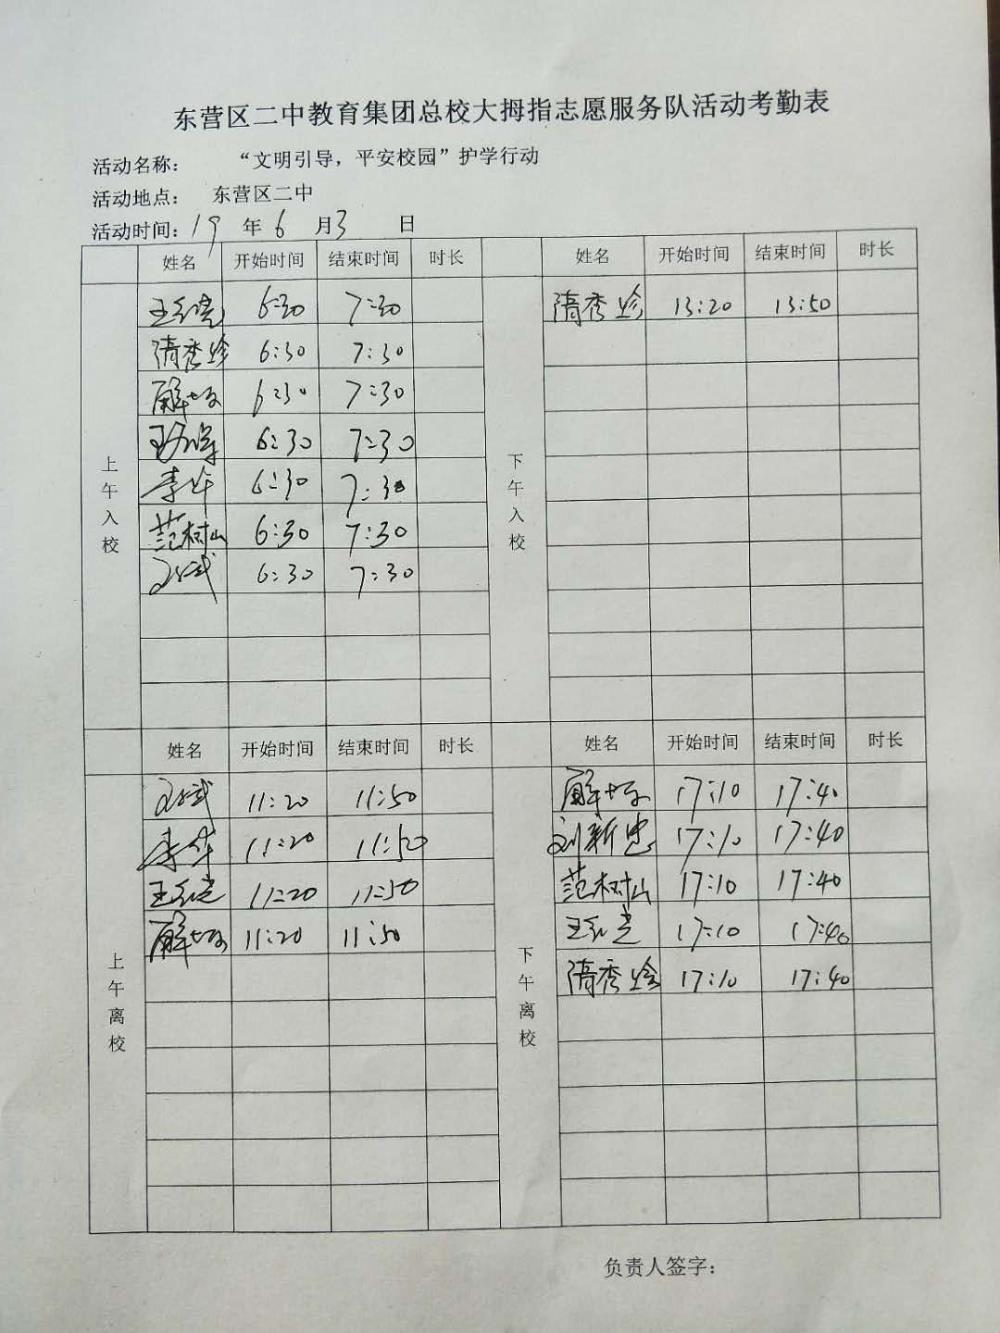 东营区二中教育集团总校大拇指志愿服务队活动考勤表
活动名称： “文明引导，平安校园”护学行动
活动地点： 东营区二中
活动时间：19 年 6 月 3 日
姓名 开始时间 结束时间 时长 姓名 开始时间 结束时间 时长
上午入校
6:30 7:30
隋秀珍 6:30 7:30
解 6:30 7:30
王 6:30 7:30
李华 6:30 7:30
范树山 6:30 7:30
6:30 7:30
下午入校
隋秀珍 13:20 13:50
姓名 开始时间 结束时间 时长 姓名 开始时间 结束时间 时长
上午离校
11:20 11:50
李华 11:20 11:50
王 11:20 11:50
解 11:20 11:50
下午离校
解 17:10 17:40
刘新忠 17:10 17:40
范树山 17:10 17:40
王 17:10 17:40
隋秀珍 17:10 17:40
负责人签字：